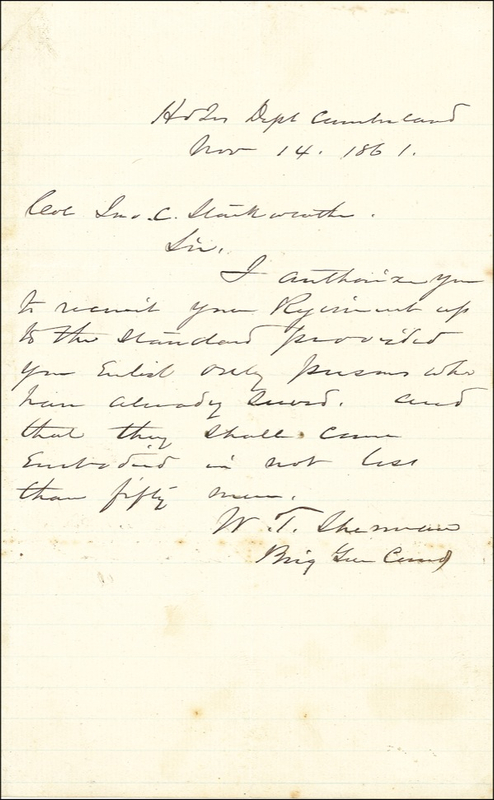 Hd Qrs Dept Cumberland
Nov 14. 1861.
Col Jno. C. Starkweather.
Sir,
I authorize you
to recruit your Regiment up
to the Standard provided
you Enlist only persons who
have already served. and
that they shall come
Embodied in not less
than fifty men.
W. T. Sherman
Brig Gen Comd